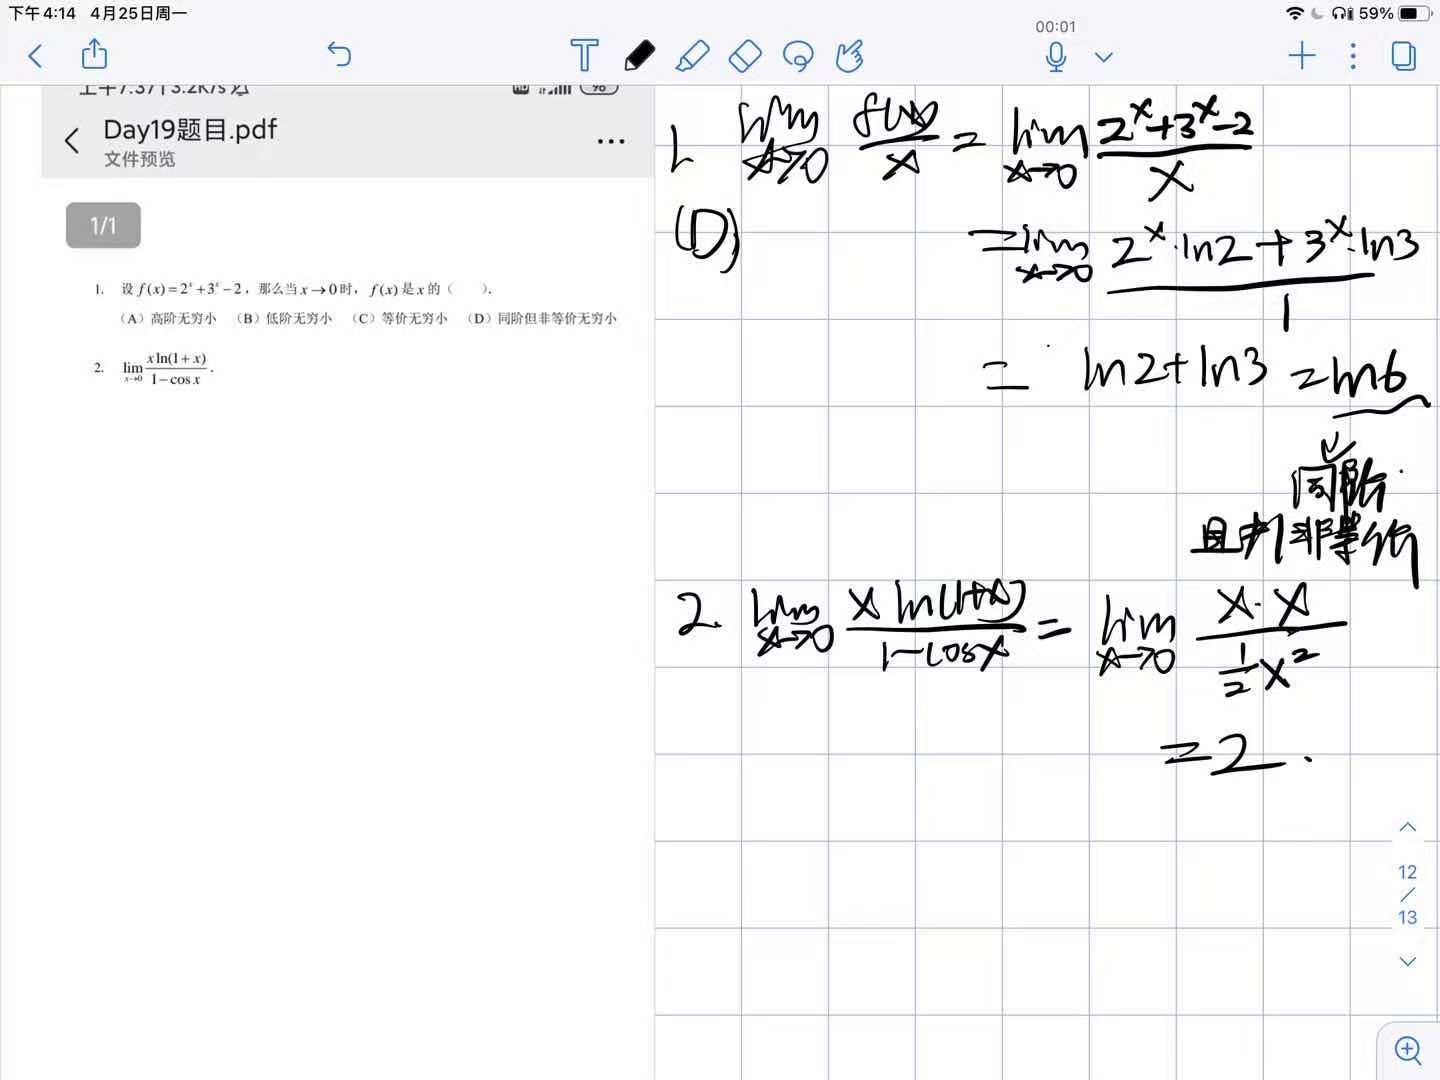 下午4:14 4月25日周一
59%
00:01
上午7:37 | 3.2K/s
Day19题目.pdf
文件预览
1/1
1. 设 f(x)=2^x+3^x−2，那么当x→0时，f(x)是x的（ ）.
（A）高阶无穷小 （B）低阶无穷小 （C）等价无穷小 （D）同阶但非等价无穷小
2. lim x→0 xln(1+x)/1−cosx.
1. lim x→0 f(x)/x = lim x→0 2^x+3^x−2/x
(D)
=lim x→0 2^x·ln2+3^x·ln3/1
= ln2+ln3 =ln6
同阶
且≠1 非等价
2. lim x→0 x ln(1+x)/1−cosx = lim x→0 x·x/½x²
=2.
12
/
13